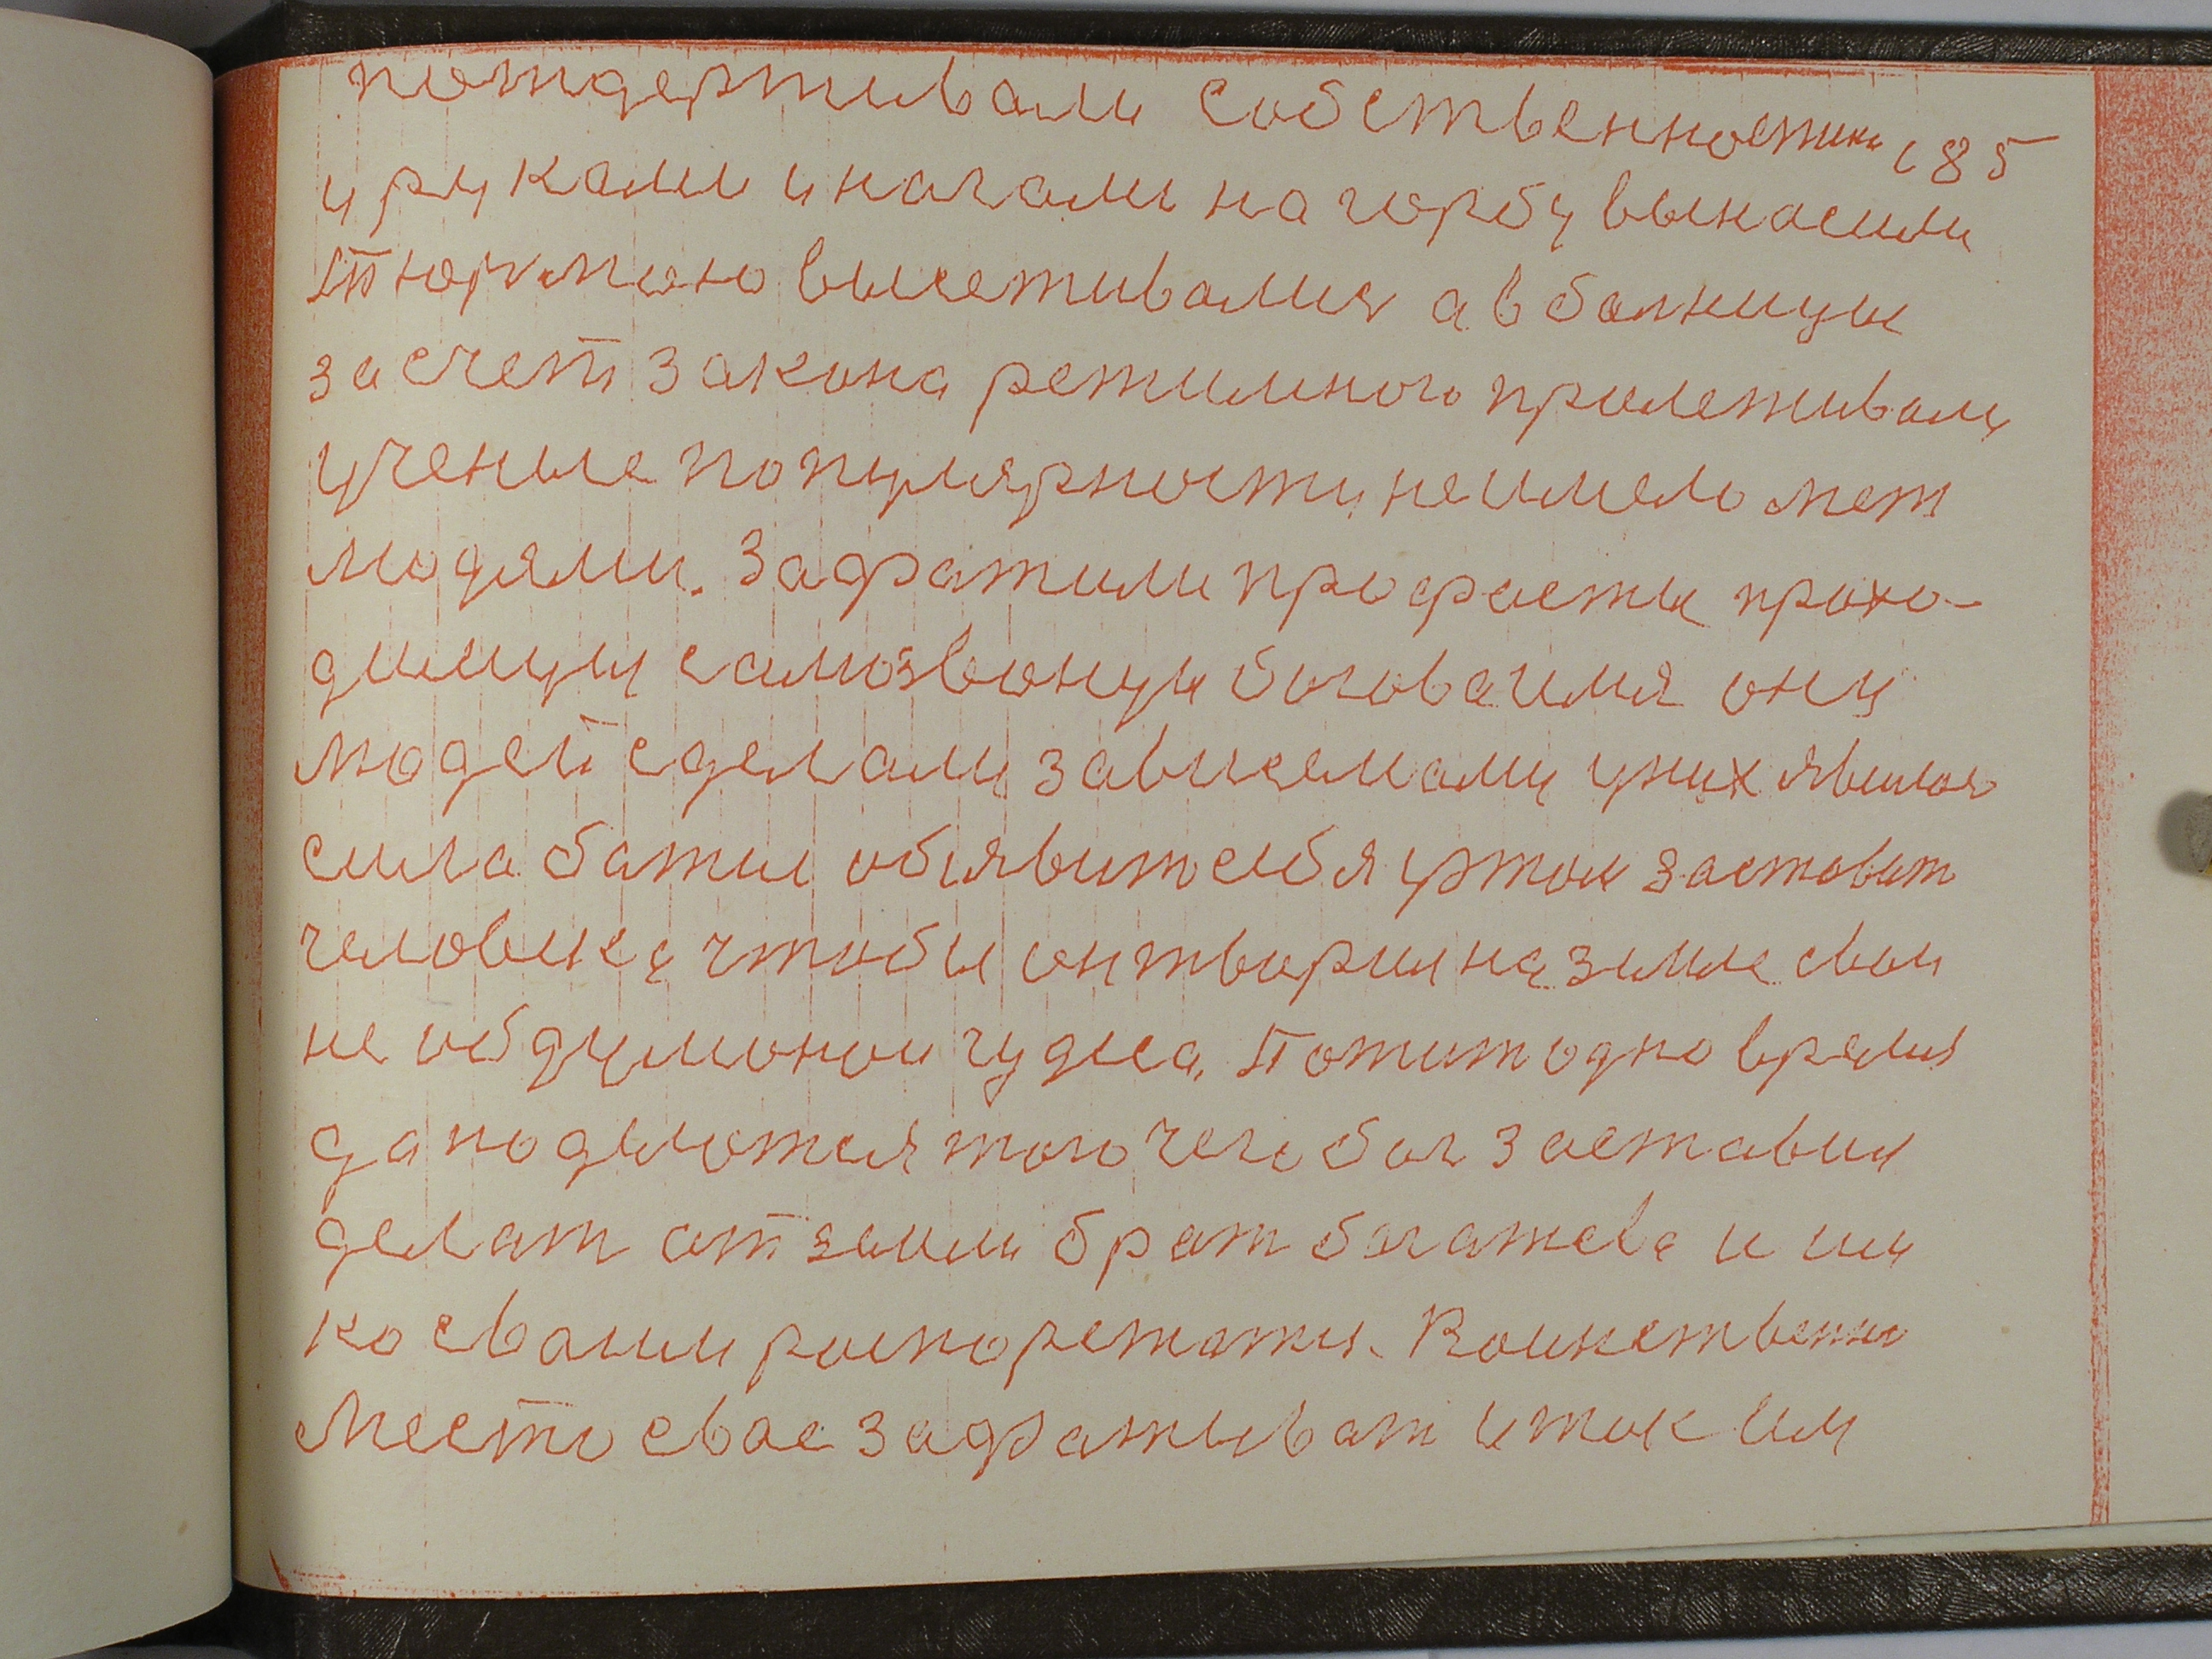 потдерживали собственностики 185
и руками и ногами на горбу выносили
Тюрмою высеживалися а в болницы
за счет закона режимного пролеживали
учение популярности не имело меж
людями. Зафатили профасты прохо-
димцы самозванцы богова имя они
людей сделали зависемами у них явилоя
сила бажия обявит себя и этом заставит
человека чтобы он творил на земле свои
не обдуманои чудеса. Пожит одно время
да поделится того чего бог заставил
делат от земли брат богатсва и им
ко свами роспоретатжи. Воинственно
Место свое зафатыват и так им